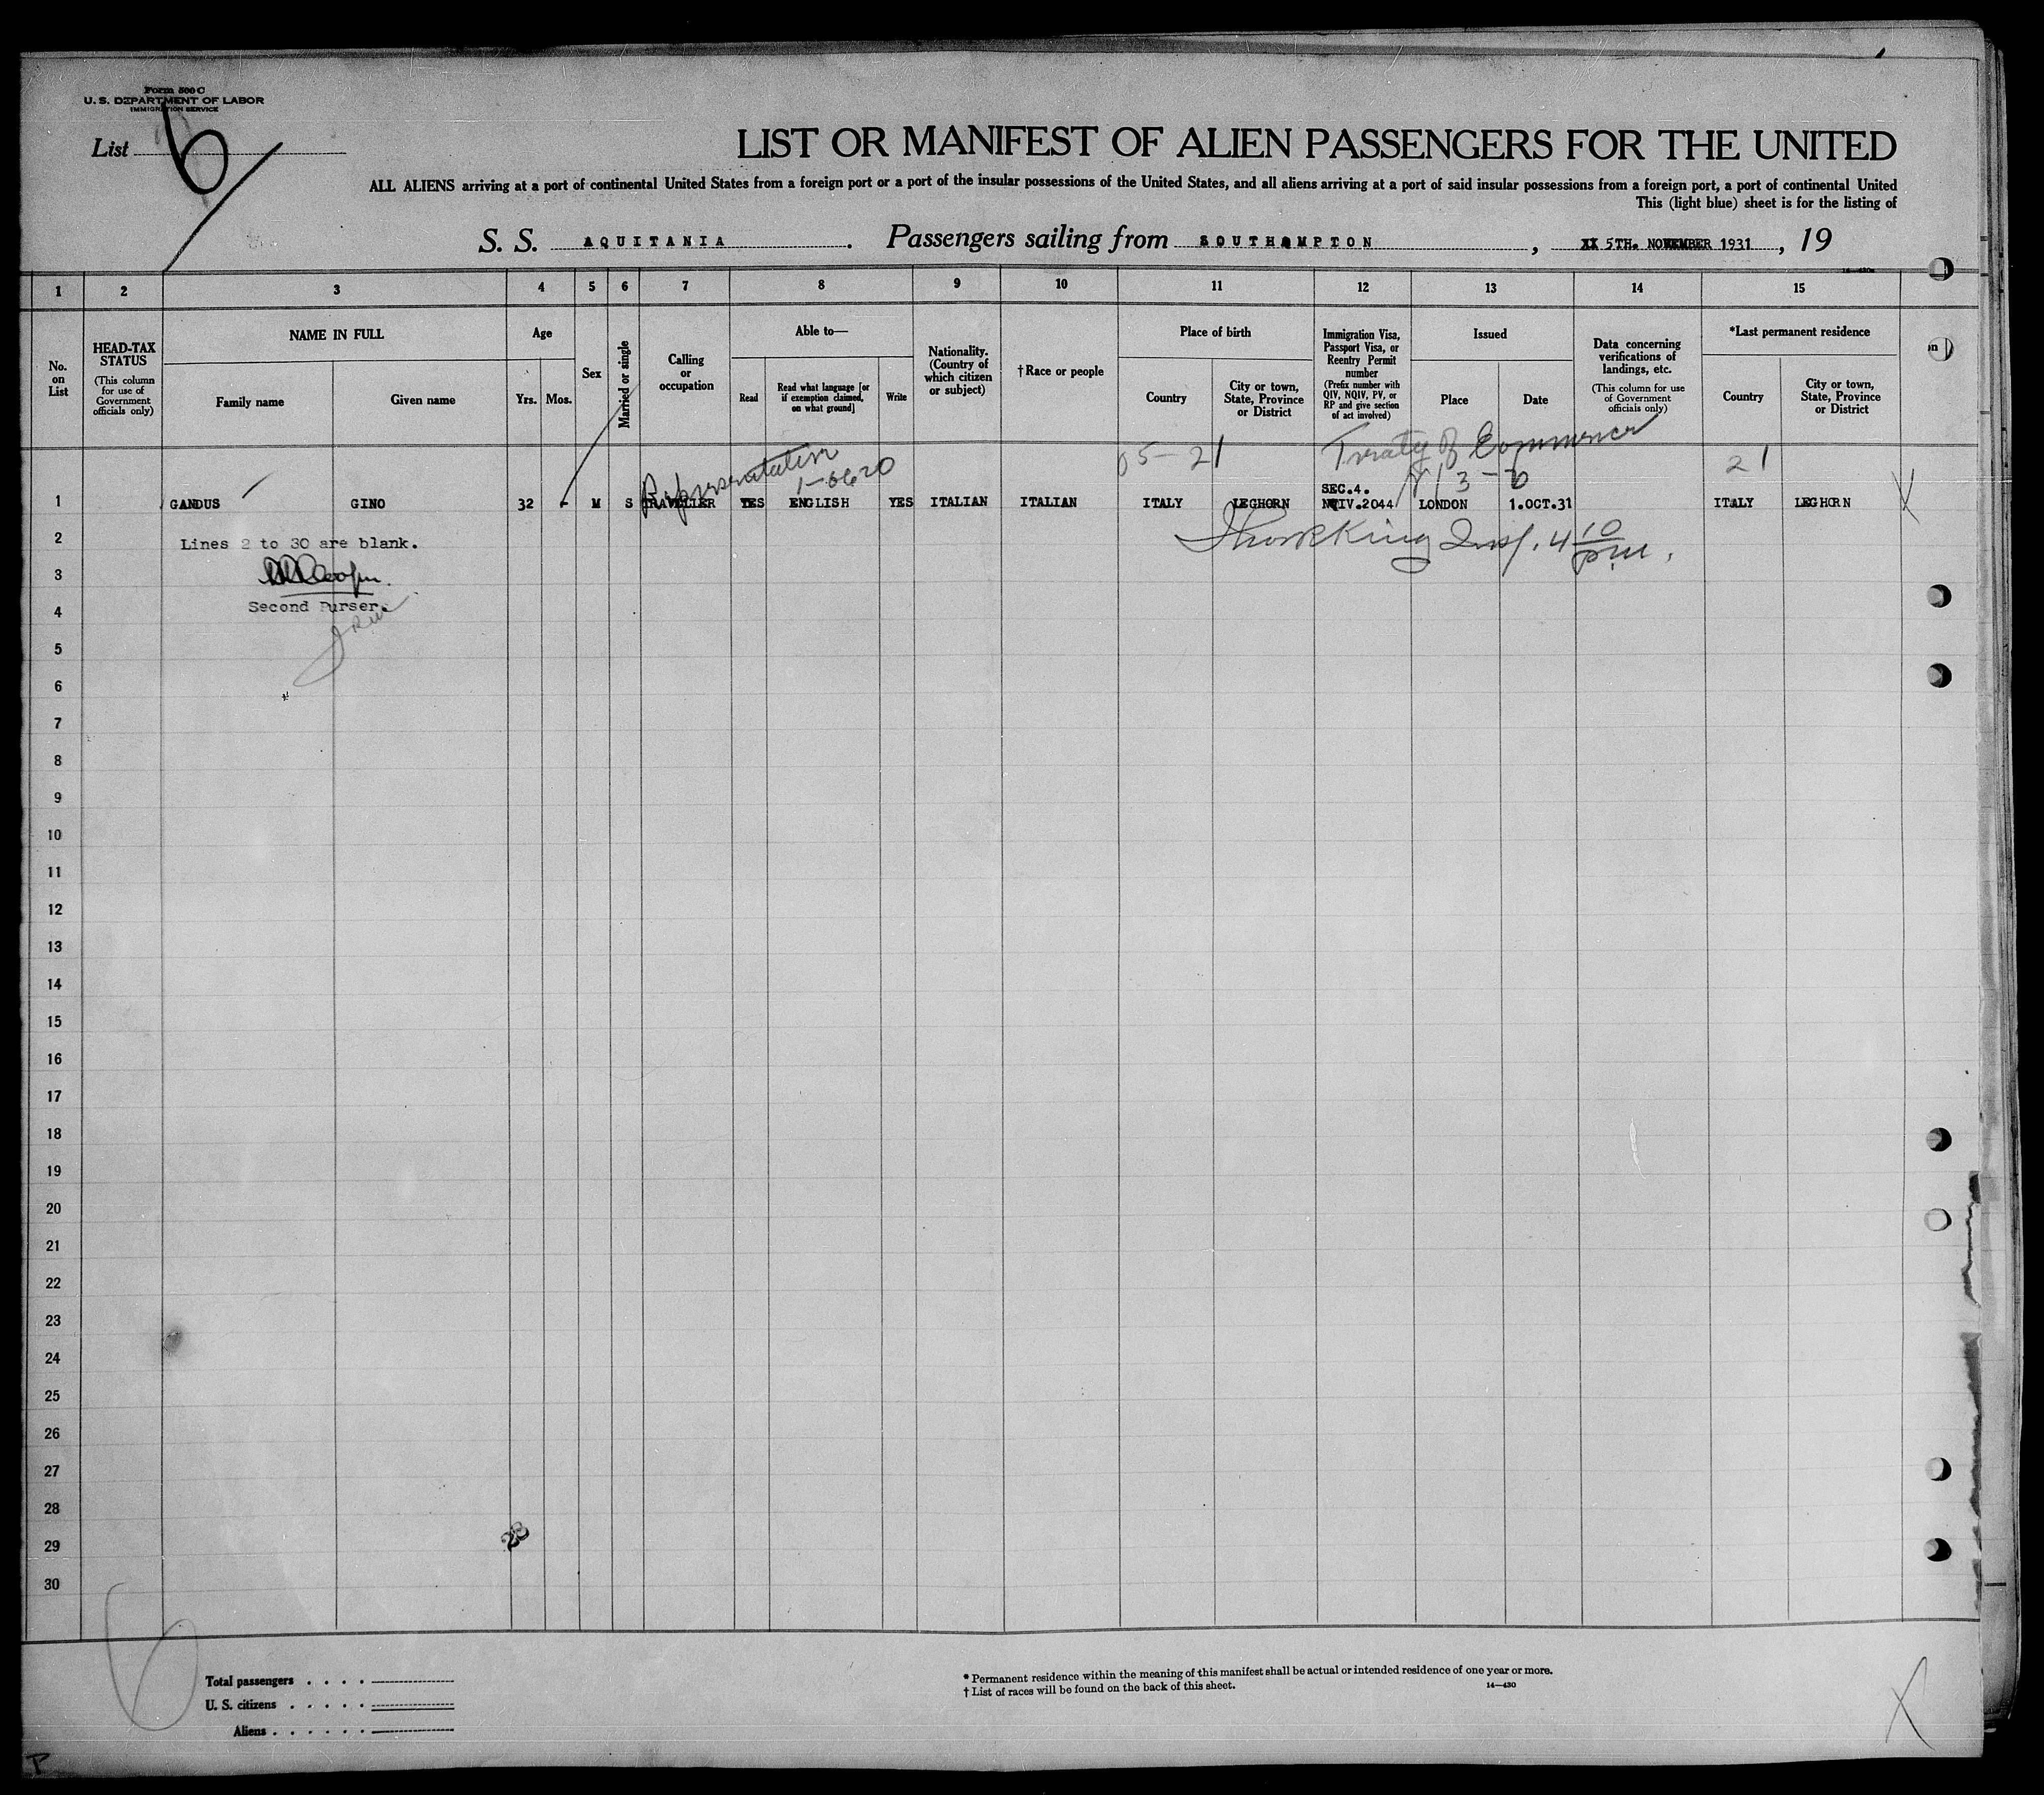 Form 500 C
U. S. DEPARTMENT OF LABOR
IMMIGRATION SERVICE
List 6
LIST OR MANIFEST OF ALIEN PASSENGERS FOR THE UNITED
ALL ALIENS arriving at a port of continental United States from a foreign port or a port of the insular possessions of the United States, and all aliens arriving at a port of said insular possessions from a foreign port, a port of continental United
This (light blue) sheet is for the listing of
S. S. AQUITANIA . Passengers sailing from SOUTHAMPTON , XX 5TH. NOVEMBER 1931 , 19
1 2 3 4 5 6 7 8 9 10 11 12 13 14 15
No. on List
HEAD-TAX STATUS
(This column for use of Government officials only)
NAME IN FULL
Family name
Given name
Age
Yrs.
Mos.
Sex
Married or single
Calling or occupation
Able to—
Read
Read what language [or if exemption claimed, on what ground]
Write
Nationality. (Country of which citizen or subject)
†Race or people
Place of birth
Country
City or town, State, Province or District
Immigration Visa, Passport Visa, or Reentry Permit number
(Prefix number with QIV, NQIV, PV, or RP and give section of act involved)
Issued
Place
Date
Data concerning verifications of landings, etc.
(This column for use of Government officials only)
*Last permanent residence
Country
City or town, State, Province or District
Representative
1-6620
05-21
Treaty of Commerce
3-6
21
SEC.4.
1 GANDUS GINO 32 - M S TRAVELLER YES ENGLISH YES ITALIAN ITALIAN ITALY LEGHORN NQIV.2044 LONDON 1.OCT.31 ITALY LEGHORN X
2 Lines 2 to 30 are blank.
King Insp. 4 10 pm.
3
4 Second Purser.
5
6
7
8
9
10
11
12
13
14
15
16
17
18
19
20
21
22
23
24
25
26
27
28
29
30
23
Total passengers
U. S. citizens
Aliens
* Permanent residence within the meaning of this manifest shall be actual or intended residence of one year or more.
† List of races will be found on the back of this sheet.
14—430
X
P